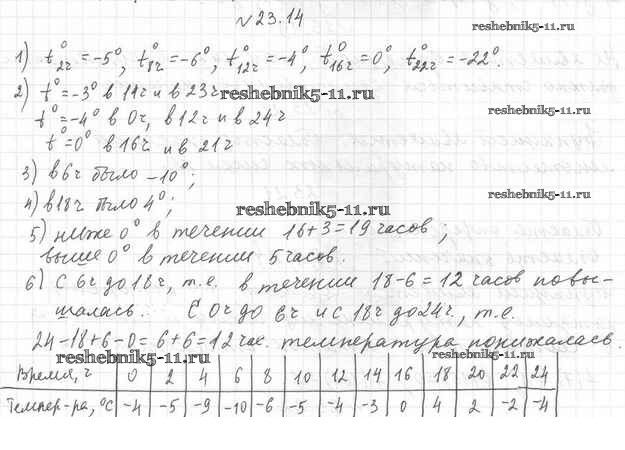 № 23.14
reshebnik5-11.ru
1) t°2ч = -5°, t°8ч = -6°, t°12ч = -4°, t°16ч = 0°, t°22ч = -22°.
2) t° = -3° в 14ч и в 23ч reshebnik5-11.ru
t° = -4° в 0ч, в 12ч и в 24ч
t° = 0° в 16ч и в 21ч
3) в 6ч было -10°;
reshebnik5-11.ru
4) в 18ч было 4°; reshebnik5-11.ru
5) ниже 0° в течении 16+3=19 часов;
выше 0° в течении 5 часов.
6) С 6ч до 18ч, т.е. в течении 18-6=12 часов повы-
шалась. С 0ч до 6ч и с 18ч до 24ч, т.е.
24-18+6-0=6+6=12 час. температура понижалась.
reshebnik5-11.ru reshebnik5-11.ru
Время, ч 0 2 4 6 8 10 12 14 16 18 20 22 24
Темпер-ра, °С -4 -5 -9 -10 -6 -5 -4 -3 0 4 2 -2 -4